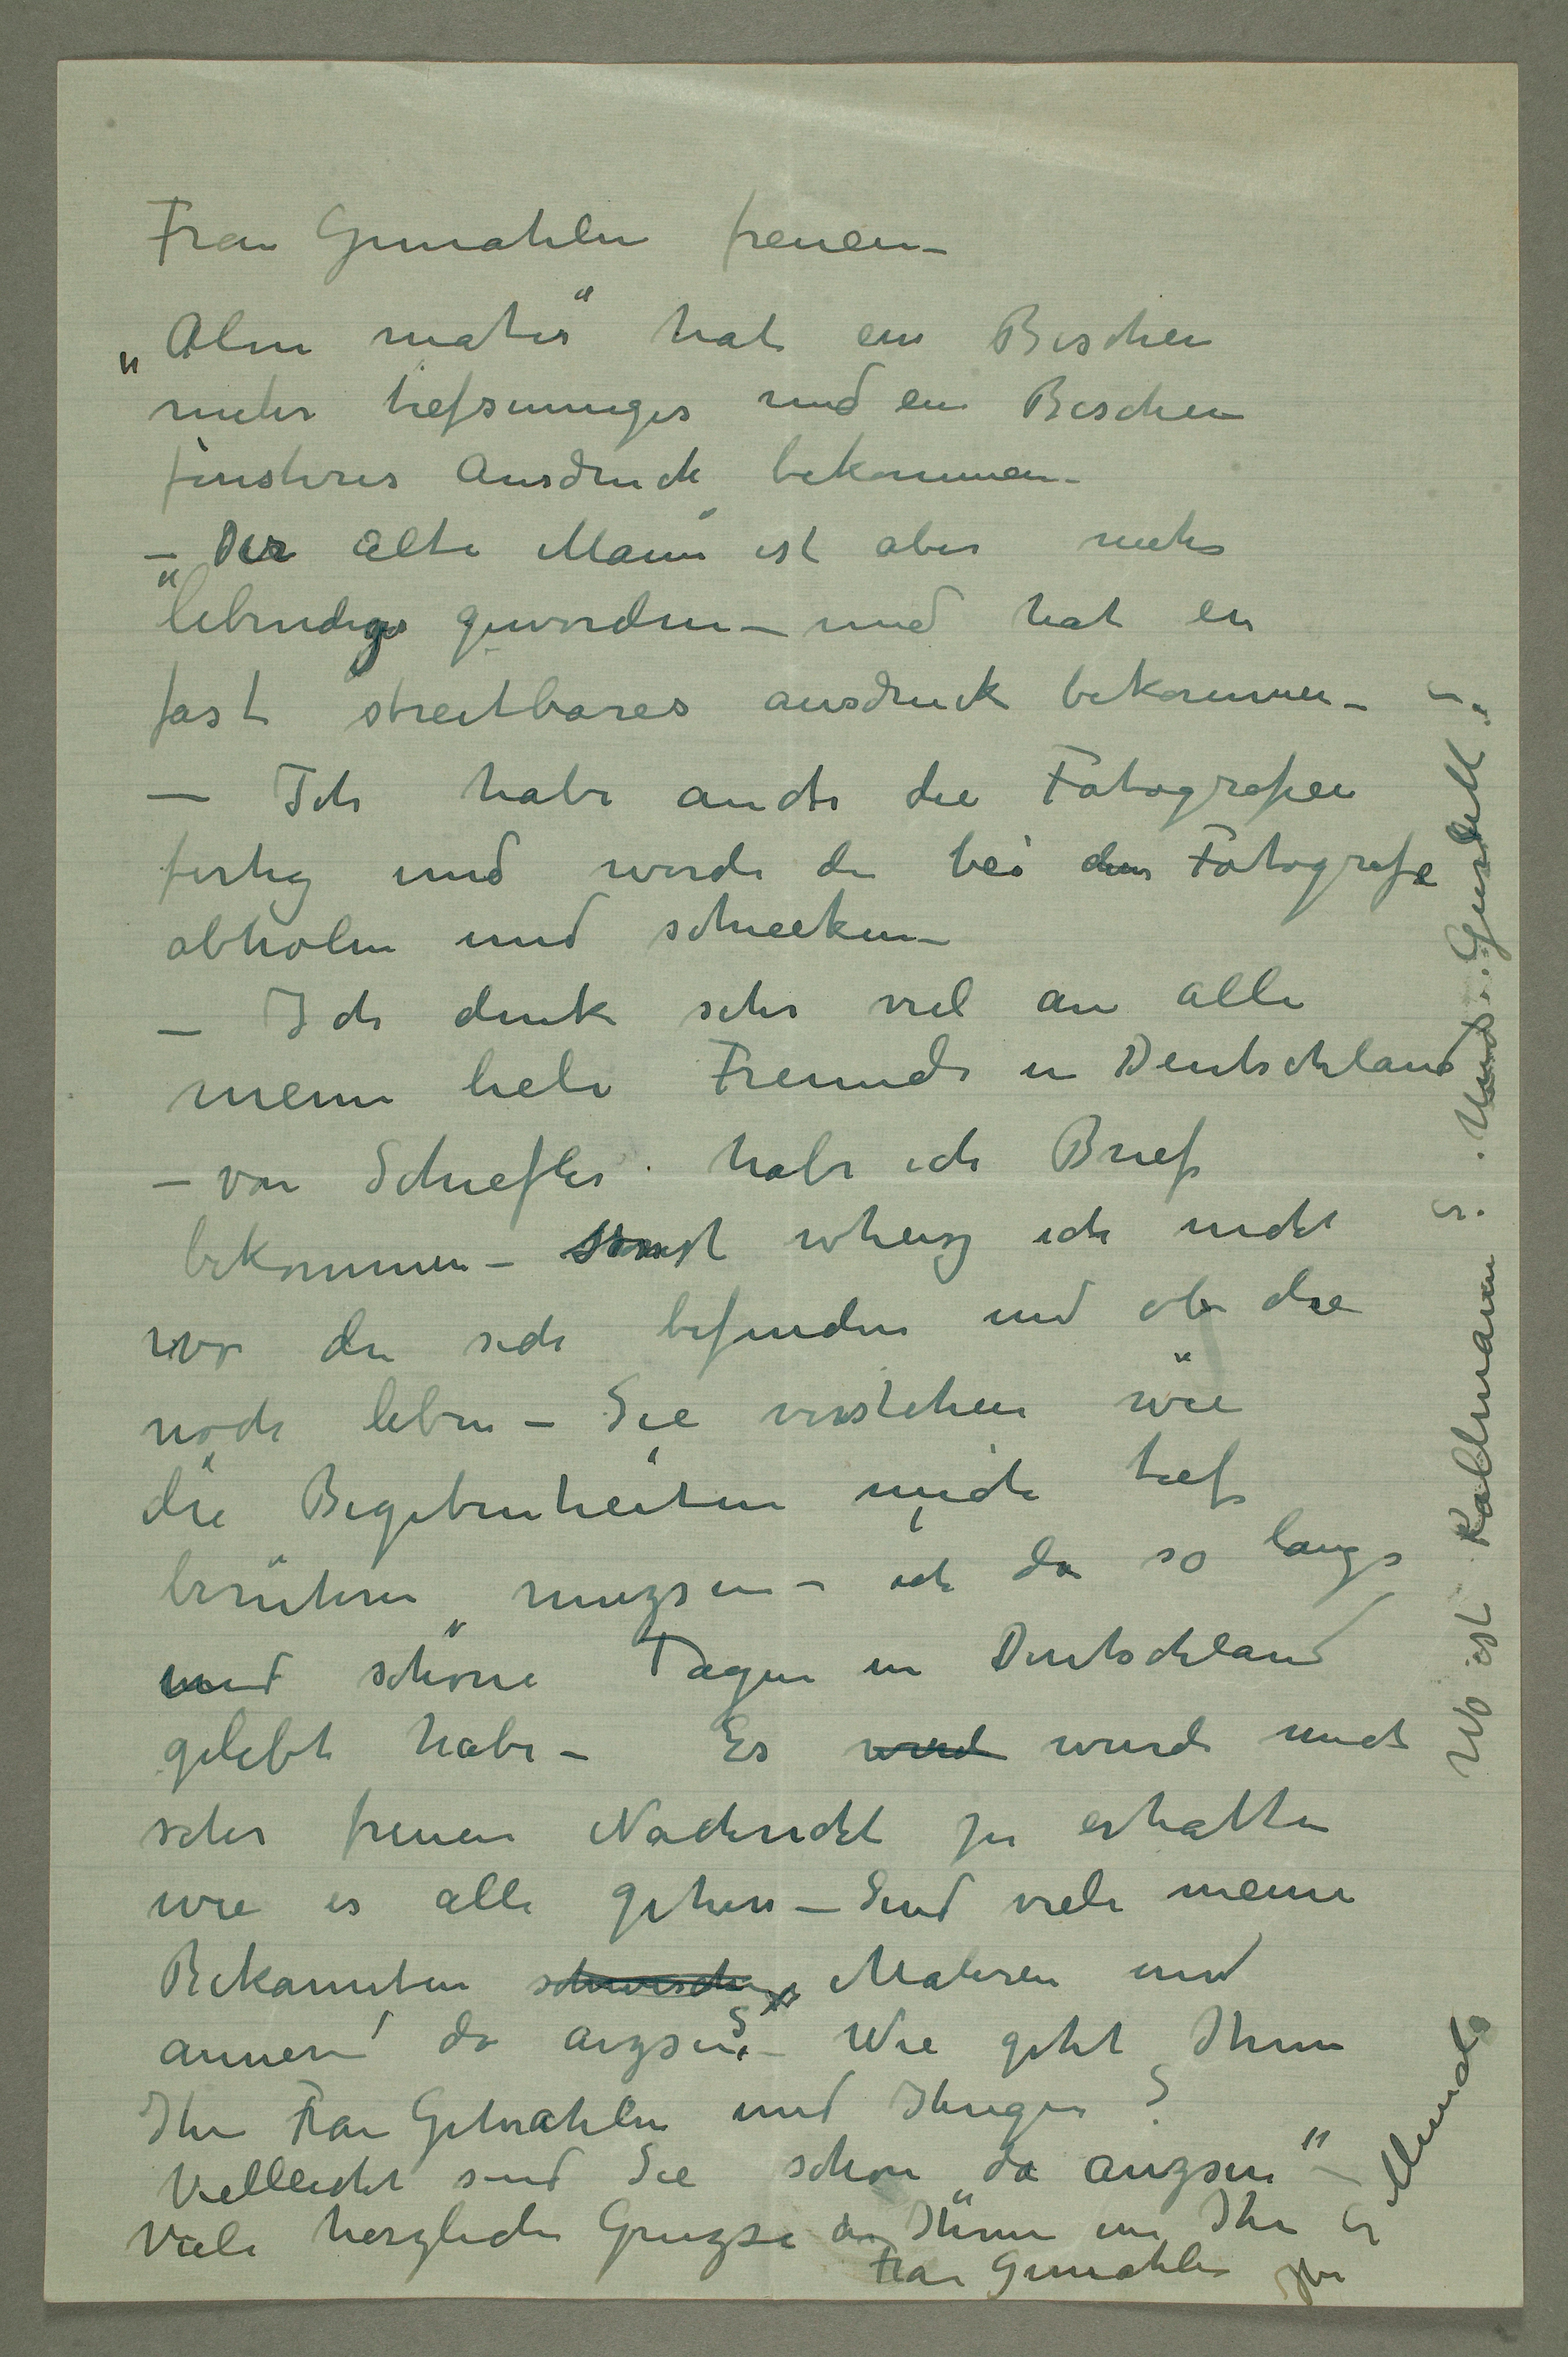 Frau Gemahlin freuen –
„Alm mater“ hat ein Bischen
mehr tiefsinniges und ein Bischen
finsteres Ausdruck bekommen –
– Der alte Mann ist aber mehr
lebendiges geworden – und hat en
fast streitbares ausdruck bekommen –
– Ich habe auch die Fotografien
fertig und werde die bei dem Fotografe
abholen und schiecken –
– Ich denke sehr viel an alle
meine liebe Freunde in Deutschland
– von Schiefler habe ich Brief
bekommen – Sonst wheisz ich nicht
wo die sich befinden und ob die
noch leben – Sie verstehen wie
die Begebenheiten mich tief
berühren muszsen – ich da so lange
und schöne Tagen in Deutschland
gelebt habe – Es wurde mich
sehr freuen Nachricht zu erhalten
wie es alle gehen – Sind viele meine
Bekannten Maleren und
annern da auzsen? – Wie geht Ihnen
Ihr Frau Gehmahlin und Ihrigen?
Vielleicht sind Sie schon da auzsen –
Viele herzliche Gruzse an Ihnen und Ihr
Frau Gemahlin
E Munch
Wo ist Kollmann? Und Gurlitt?